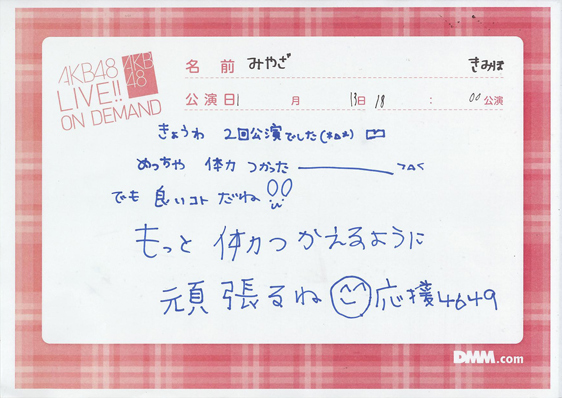 AKB48
LIVE!!
ON DEMAND
AKB
48
名前 みやざき みほ
公演日 1 月 13 日 18 : 00 公演
きょうわ 2回公演でした(*^Δ^*)
めっちゃ 体力 つかった ――― >Δ<
でも 良いコト だね
もっと 体力つかえるように
頑張るね 応援4649
DMM.com